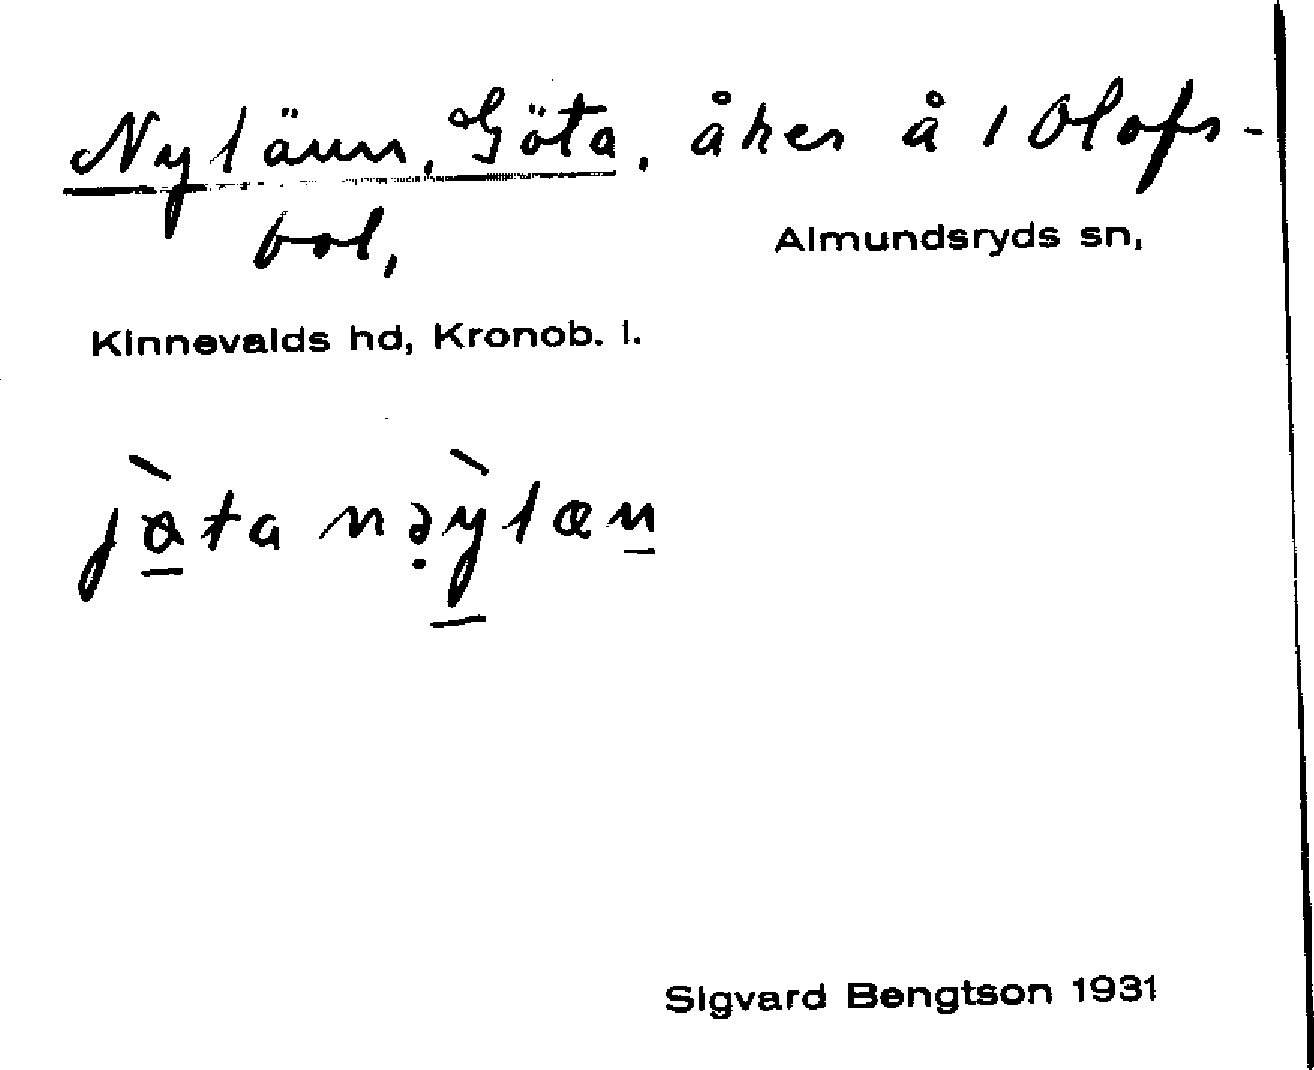 Nylänn, Göta, åker å 1 Olofs-
bol,
Almundsryds sn,
Kinnevalds hd, Kronob. l.
Sigvard Bengtson 1931